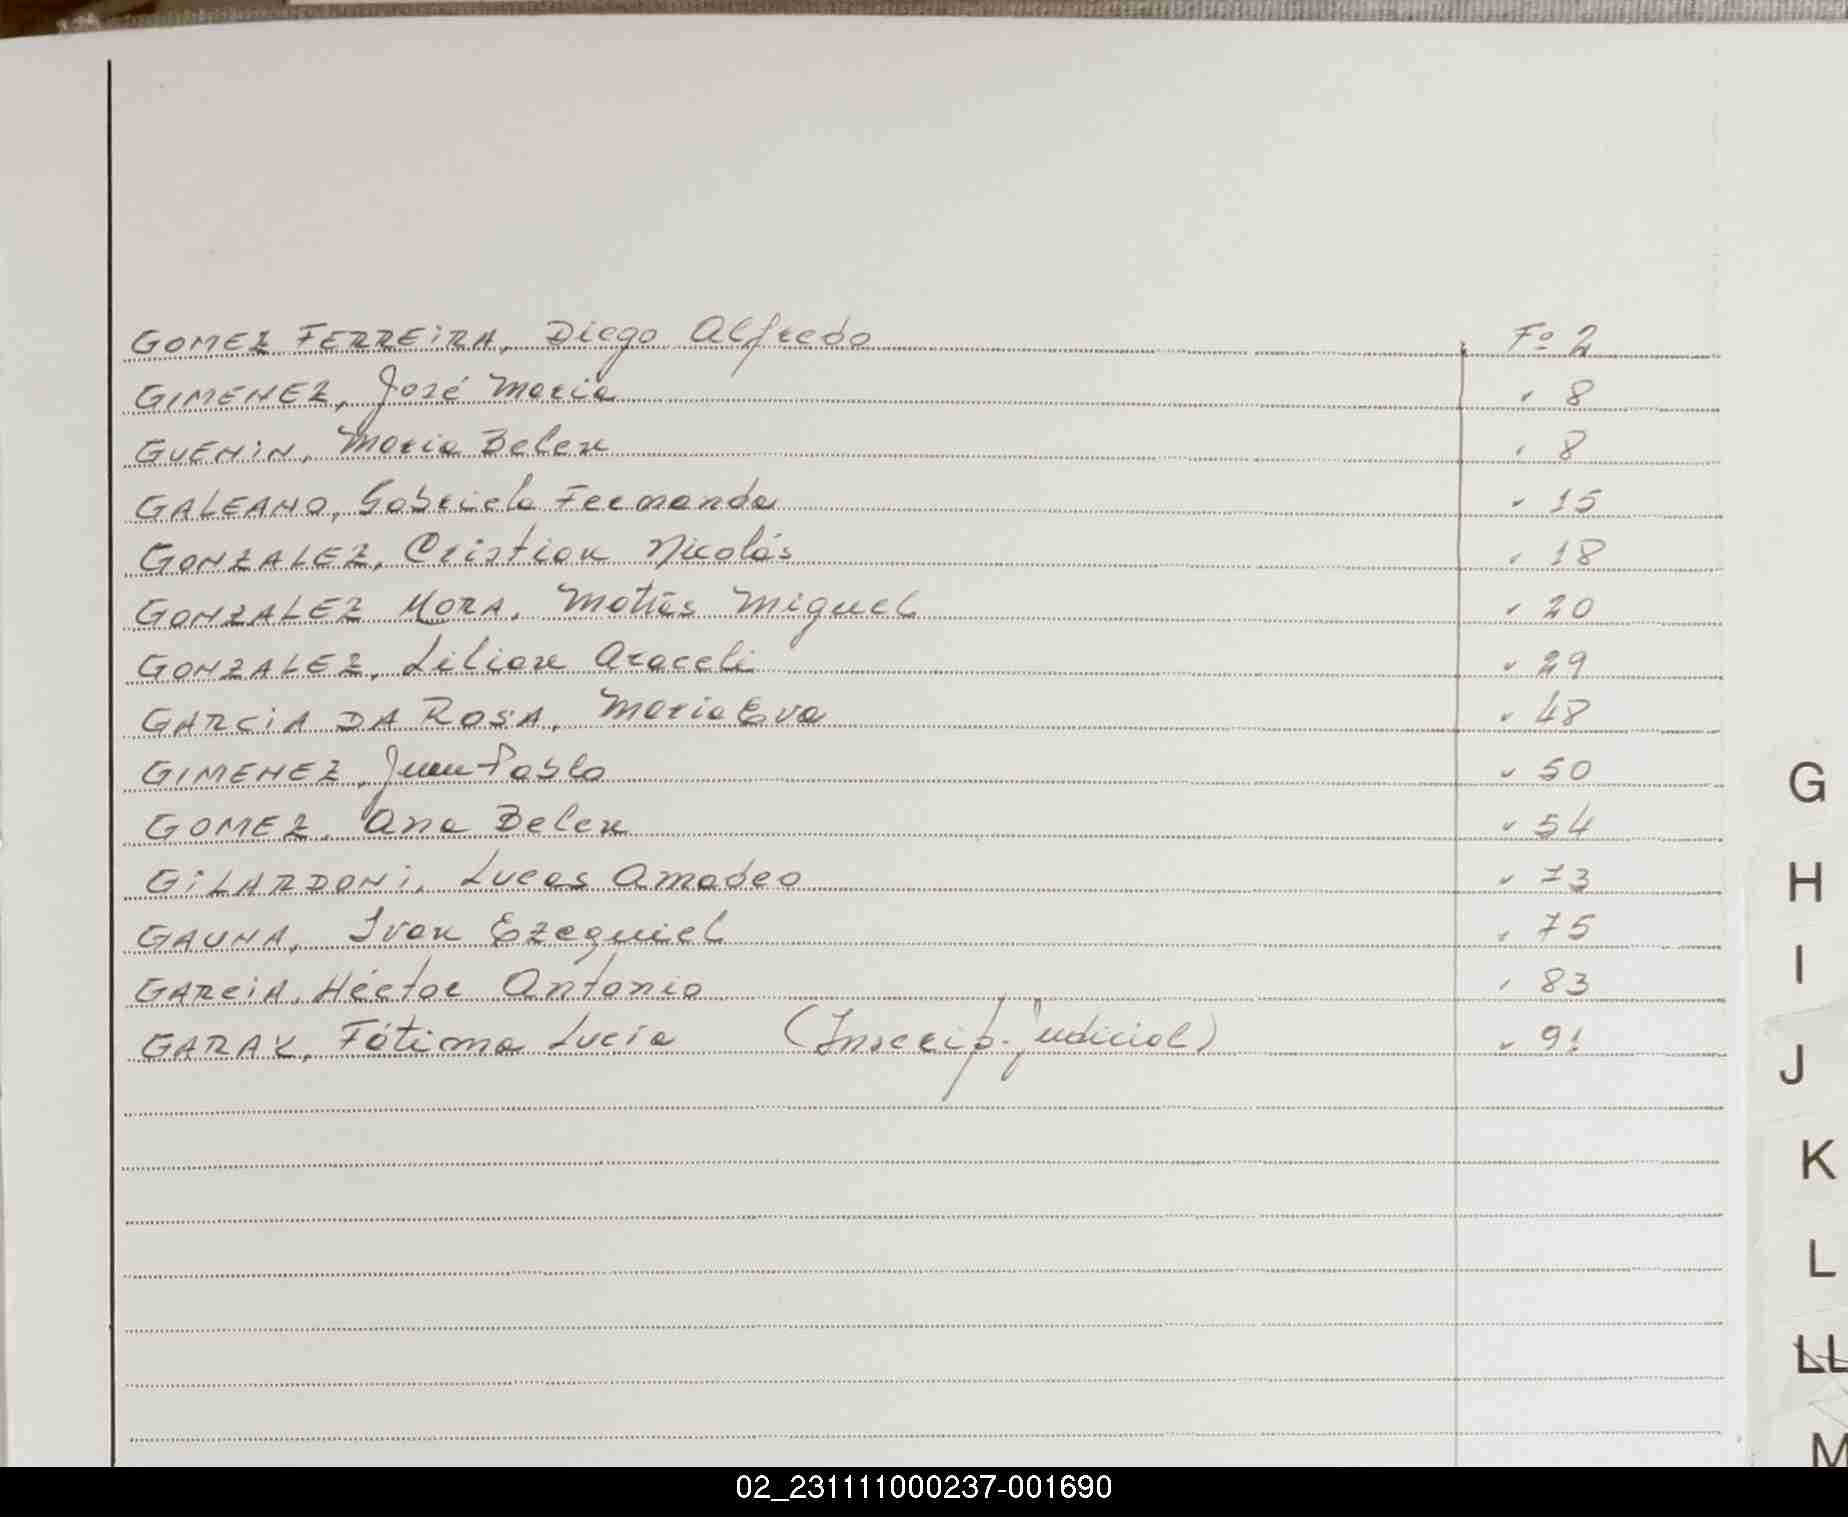 GOMEZ FERREIRA, Diego Alfredo Fº 2
GIMENEZ, José Maria " 8
GUENIN, Maria Belen " 8
GALEANO, Gabriela Fernanda " 15
GONZALEZ, Cristian Nicolás " 18
GONZALEZ MORA, Matías Miguel " 20
GONZALEZ, Lilian Araceli " 29
GARCIA DA ROSA, Maria Eva " 48
GIMENEZ, Juan Pablo " 50
GOMEZ, Ana Belen " 54
GILARDONI, Lucas Amadeo " 73
GAUNA, Ivan Ezequiel " 75
GARCIA, Héctor Antonio " 83
GARAY, Fátima Lucía (Inscrip. judicial) " 91
G
H
I
J
K
L
LL
M
02_231111000237-001690